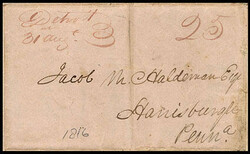 Detroit 25
31 Augt.
Jacob M. Haldeman Esqr
Harrisburgh
Penna
1816